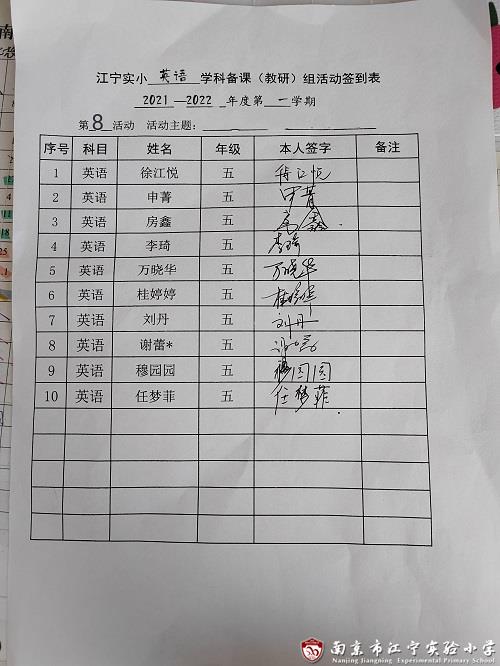 江宁实小 英语 学科备课（教研）组活动签到表
2021—2022 年度第 一 学期
第 8 活动 活动主题：
序号 科目 姓名 年级 本人签字 备注
1 英语 徐江悦 五 徐江悦
2 英语 申菁 五 申菁
3 英语 房鑫 五 房鑫
4 英语 李琦 五 李琦
5 英语 万晓华 五 万晓华
6 英语 桂婷婷 五
7 英语 刘丹 五 刘丹
8 英语 谢蕾* 五
9 英语 穆园园 五 穆园园
10 英语 任梦菲 五 任梦菲
南京市江宁实验小学
Nanjing Jiangning Experimental Primary School